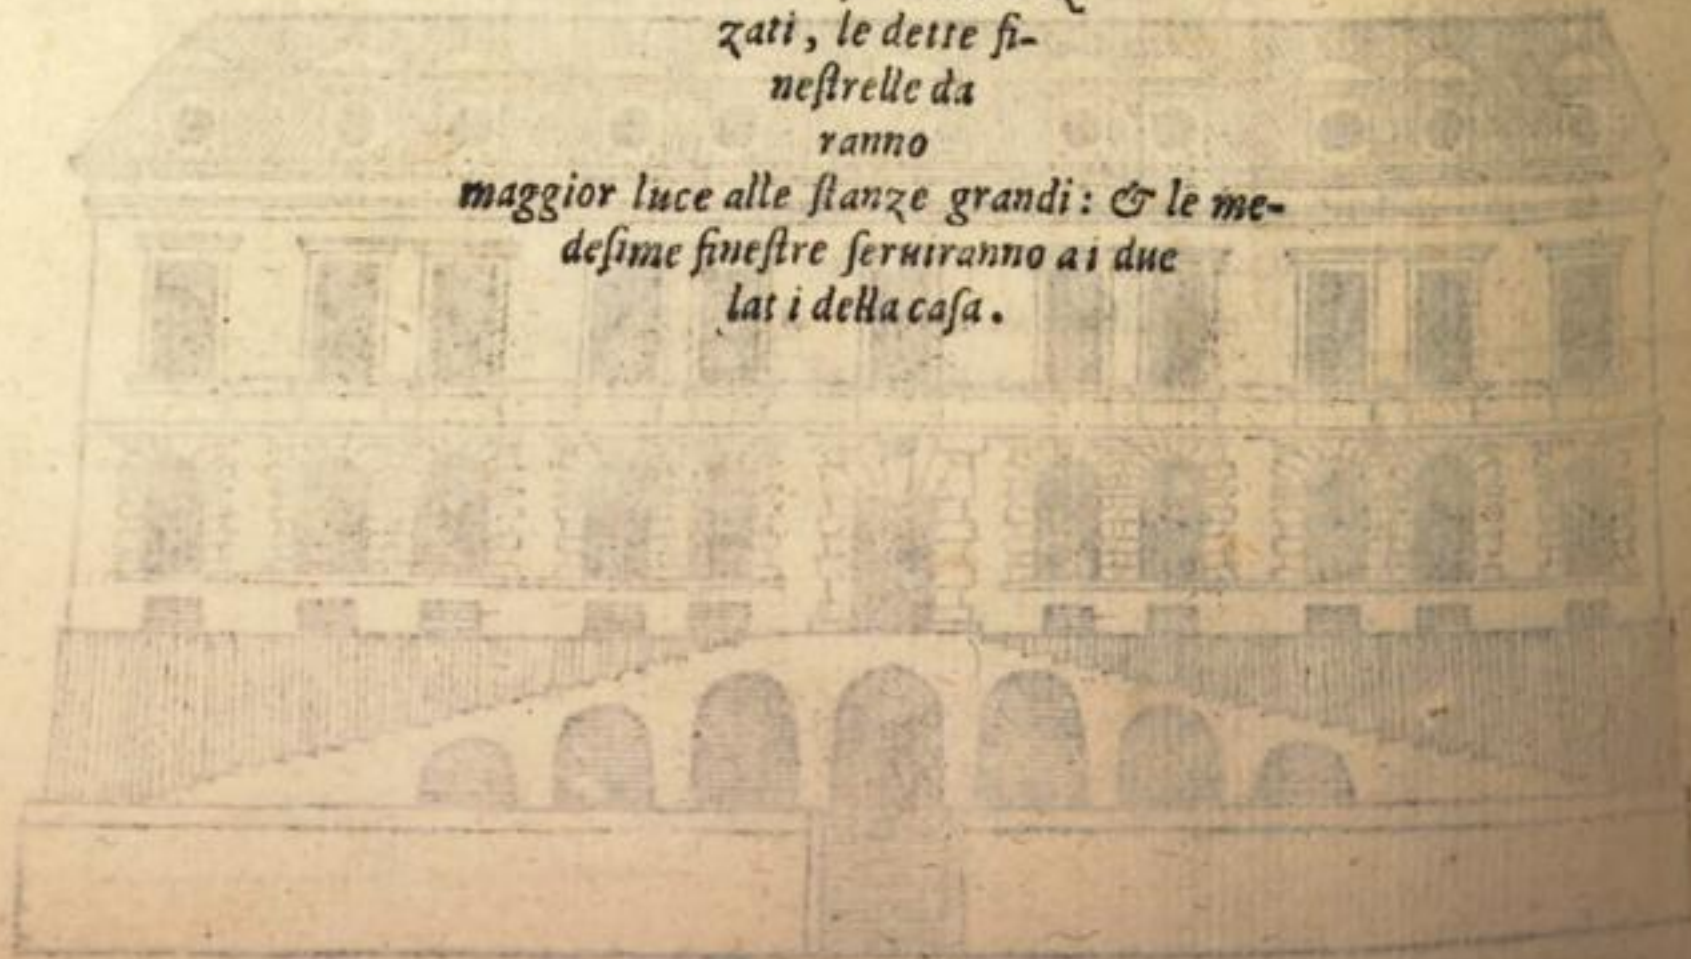 zati, le dette fi-
neſtrelle da
ranno
maggior luce alle ſtanze grandi: & le me-
deſime fineſtre ſeruiranno ai due
lat i della caſa.